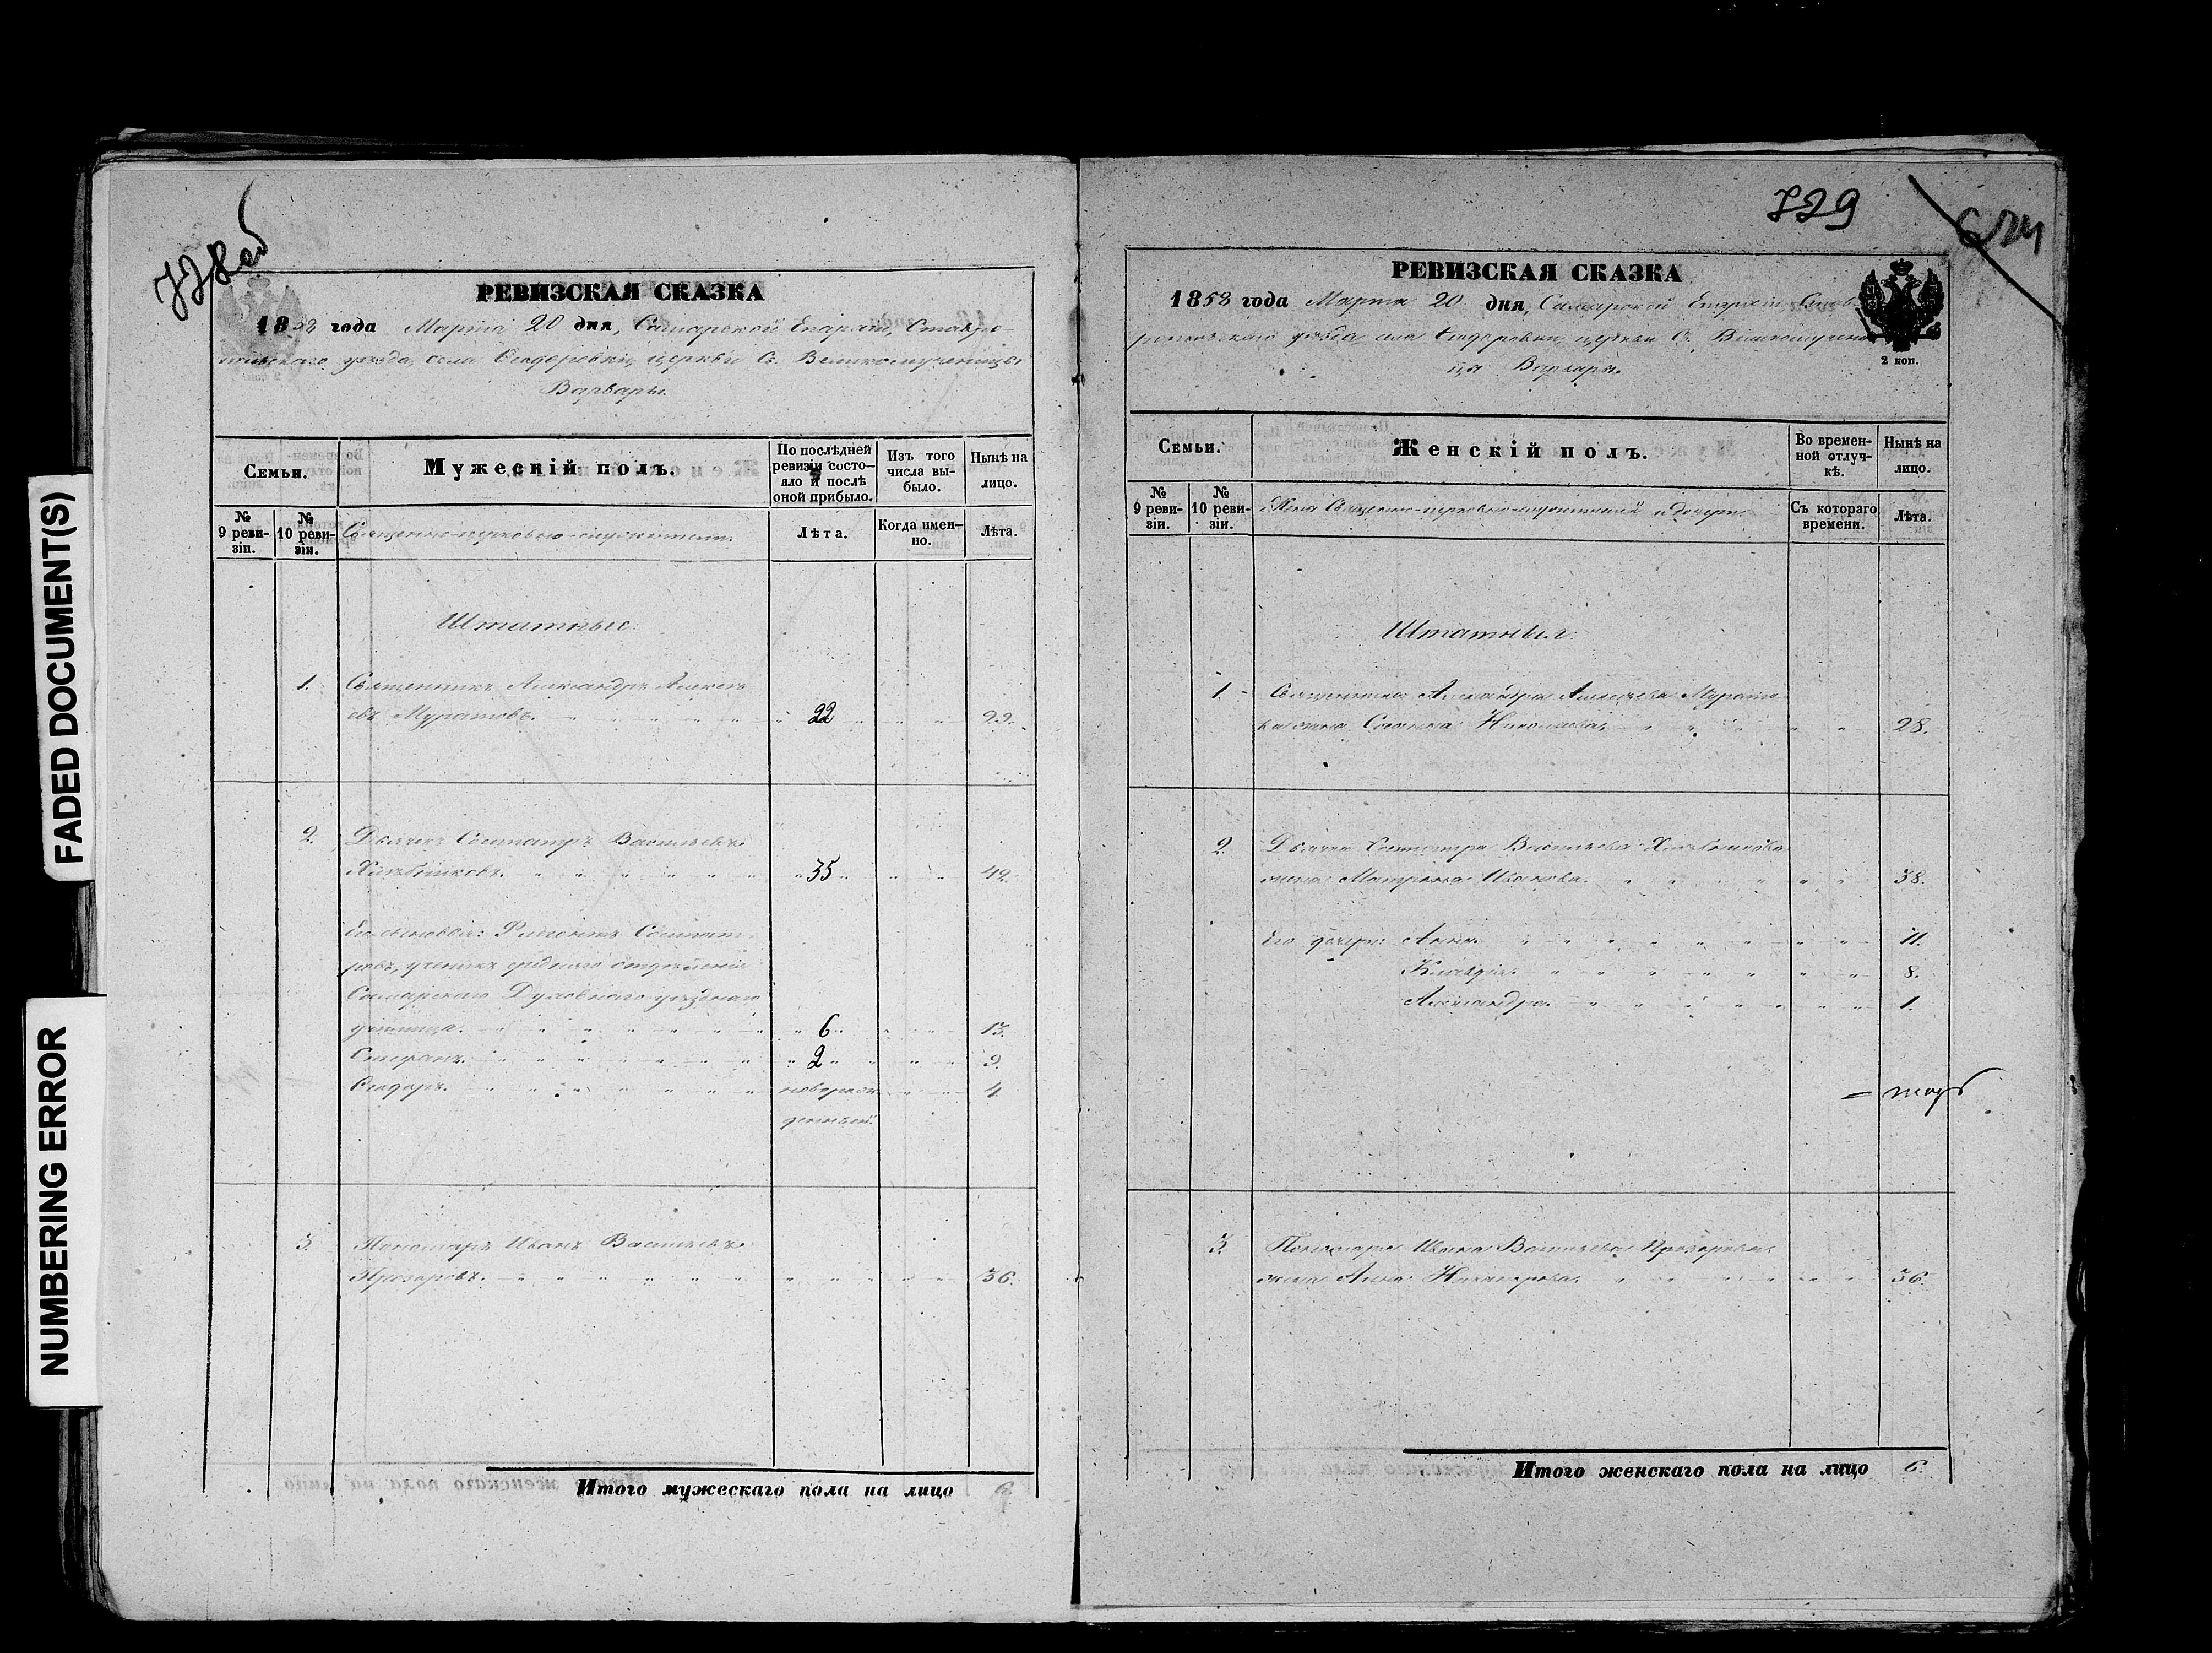 FADED DOCUMENT(S)
NUMBERING ERROR
728 об
РЕВИЗСКАЯ СКАЗКА
1858 года Марта 20 дня, Самарской Епархіи, Ставро-
польскаго уѣзда, села Ѳедоровки, церкви С. Великомученицы
Варвары.
Семьи.
Мужескій полъ.
По послѣдней ревизіи состо-
яло и послѣ оной прибыло.
Изъ того числа вы-
было.
Нынѣ на лицо.
№ 9 реви-
зіи.
№ 10 реви-
зіи.
Священно-церковно-служители.
Лѣта.
Когда имен-
но.
Лѣта.
Штатные:
1. Священникъ Александръ Алексѣ-
евъ Муратовъ. 22 29.
2. Дьячекъ Сосипатръ Васильевъ
Хлѣбниковъ. 35 42.
Его сыновья: Сосипат-
ровъ, ученикъ отдѣленія
Самарскаго Духовнаго уѣзднаго
училища. 6 13.
Стефанъ. 2 9.
Ѳедоръ. новорож- 4
денный.
3. Пономарь Иванъ Васильевъ
36.
Итого мужескаго пола на лицо 6.
729
РЕВИЗСКАЯ СКАЗКА
1858 года Марта 20 дня, Самарской Епархіи Ставро-
польскаго уѣзда села Ѳедоровки церкви С. Великомучени-
цы Варвары.
2 коп.
Семьи.
Женскій полъ.
Во времен-
ной отлуч-
кѣ.
Нынѣ на лицо.
№ 9 реви-
зіи.
№ 10 реви-
зіи.
Жены Священно-церковно-служителей и дочери.
Съ котораго времени.
Лѣта.
Штатныя:
1. Священника Александра Алексѣева Мурато-
ва жена Николаева. 28.
2. Дьячка Сосипатра Васильева Хлѣбникова
жена Матрона Иванова. 38.
Его дочери: Анна. 11.
Клавдія. 8.
Александра. 1.
3. Пономаря Ивана Васильева
жена Анна Никифорова. 36.
Итого женскаго пола на лицо 6.